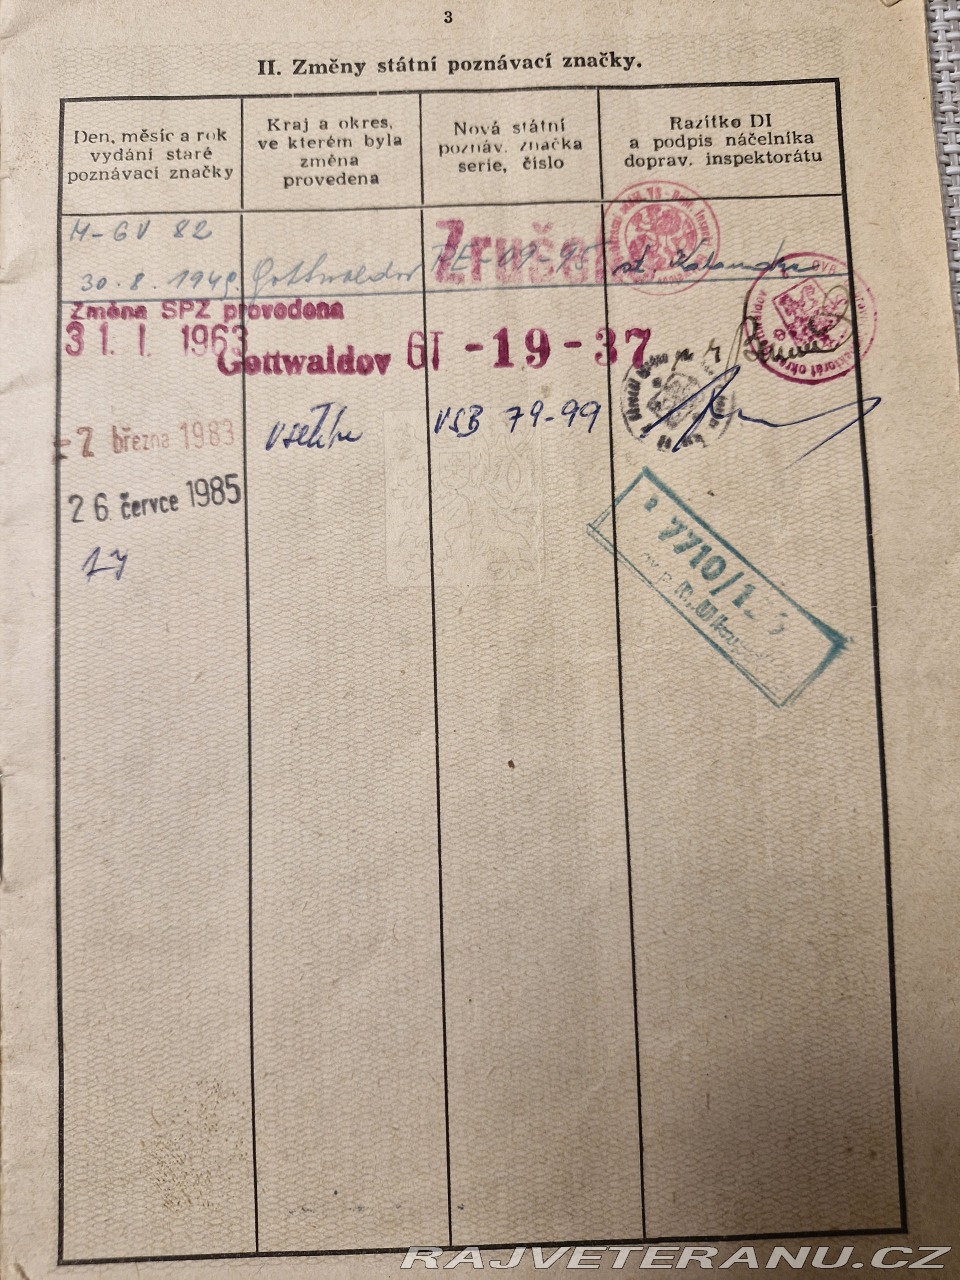 3
II. Změny státní poznávací značky.
Den, měsíc a rok
vydání staré
poznávací značky
Kraj a okres,
ve kterém byla
změna
provedena
Nová státní
poznáv. značka
serie, číslo
Razítko DI
a podpis náčelníka
doprav. inspektorátu
M-GV 82
30. 8. 1949. Gottwaldov
09-95
Zrušeno
Změna SPZ provedena
31. 1. 1963
Gottwaldov GT - 19 - 37
- 2. března 1983 Vsetín VSB 79-99
26. července 1985
7710/1
RAJVETERANU.CZ